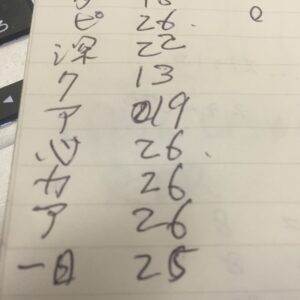 ピ 26.
深 22
ク 13
ア 19
心 26.
カ 26
ア 26
一日 25